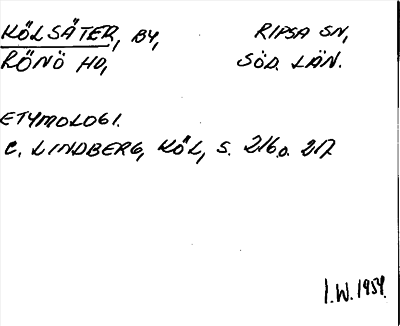 KÖLSÄTER, BY, RIPSA SN,
RÖNÖ HD, SÖD. LÄN.
ETYMOLOGI.
C. LINDBERG, KÖL, S. 216 o. 217
I.W. 1954.